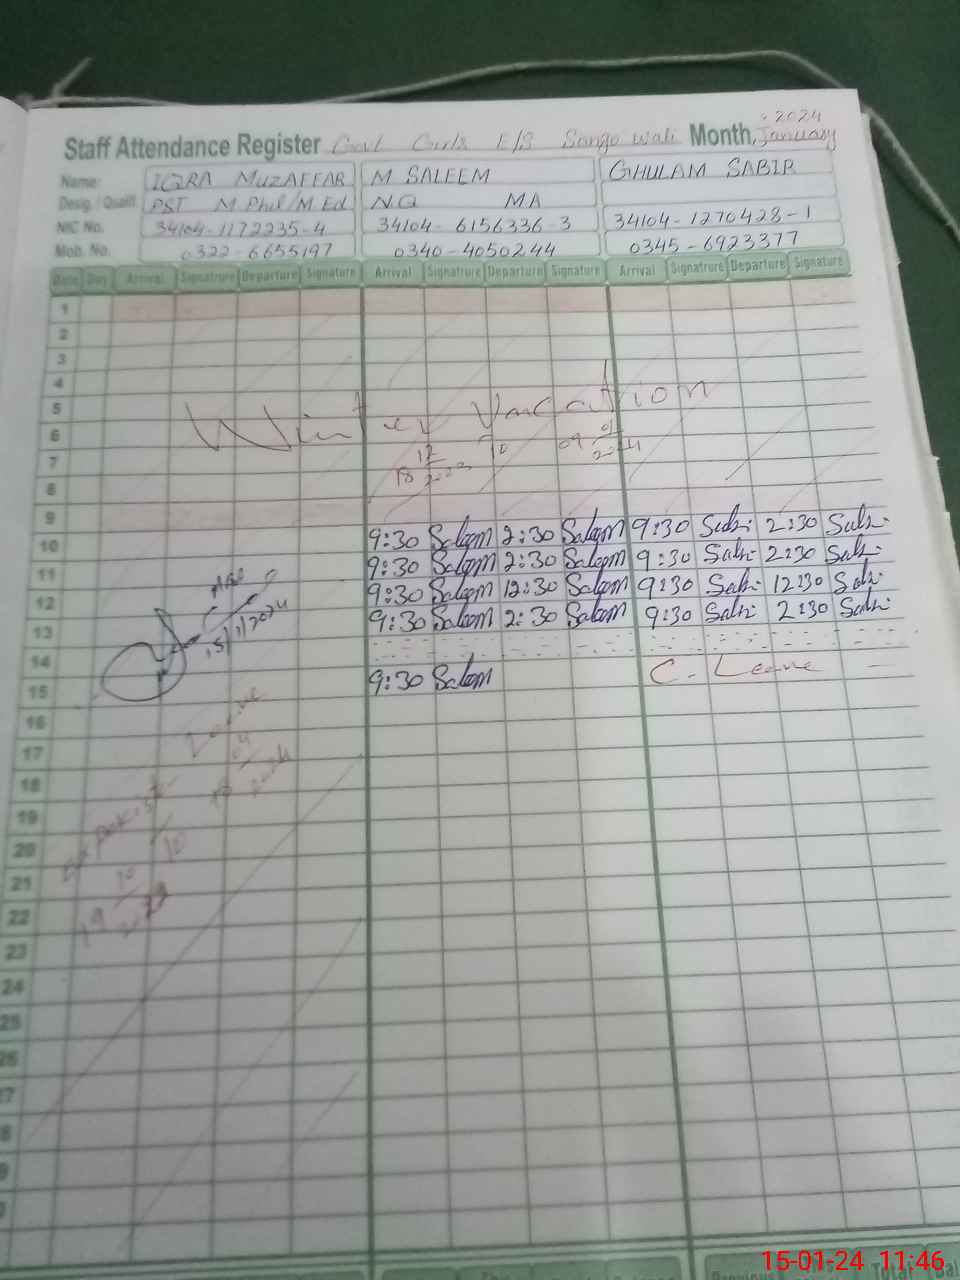 2024
Staff Attendance Register Govt Girls E/S Sango wali Month, January
Name: IQRA MUZAFFAR M SALEEM GHULAM SABIR
Desig. / Qualifi. PST M.Phil/M.Ed NQ MA
NIC No. 34104-1172235-4 34104-6156336-3 34104-1270428-1
Mob. No. 0322-6655197 0340-4050244 0345-6923377
Date Day Arrival Signatrure Departure Signature Arrival Signatrure Departure Signature Arrival Signatrure Departure Signature
1
2
3
4
5 Winter Vacation
6
7
8
9
10 9:30 Saleem 2:30 Saleem 9:30 Sabir 2:30 Sabir
11 9:30 Saleem 2:30 Saleem 9:30 Sabir 2:30 Sabir
12 9:30 Saleem 12:30 Saleem 9:30 Sabir 12:30 Sabir
13 9:30 Saleem 2:30 Saleem 9:30 Sabir 2:30 Sabir
15/1/2024
14
15 9:30 Saleem C. Leave
16
Leave
17
18
19
20
21
22
23
24
25
26
15-01-24 11:46